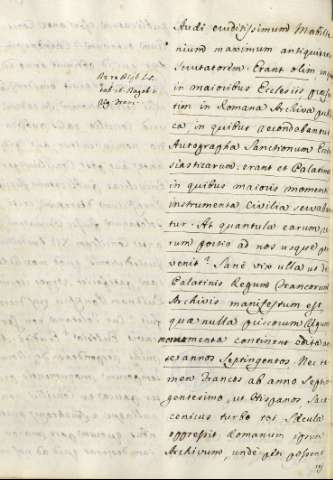 Audi eruditissimum Mabillo
nium maximum antiquitat
Scrutatorem. Erant olim in
in maioribus Ecclesiis præser
tim in Romana Archiva publi
ca in quibus recondabantur
Autographa Sanctionum Eccle
siasticarum. erant et Palatina
in quibus maioris momenti
instrumenta Civilia servaban
tur. At quantula earum re
rum portio ad nos usque per
venit? Sanè vix ulla ut de
Palatinis Regum Francorum
Archivis manifestum est
quæ nulla priscorum Regum
monumenta continent edita an
te annos Septingentos. Nec ta
men Francos ab anno Septin
gentesimo, ut Hispanos Sara
cenicus turbo tot Sæcula
oppressit. Romanum igitur
Archivum, unde peti possent